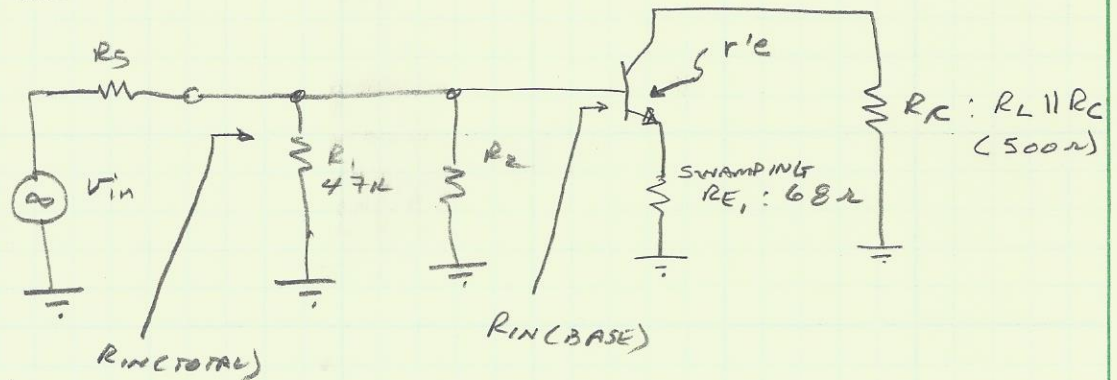 RS
r'e
Vin
R1
47K
R2
SWAMPING
RE1 : 68Ω
RC : RL || RC
(500Ω)
RIN(TOTAL)
RIN(BASE)